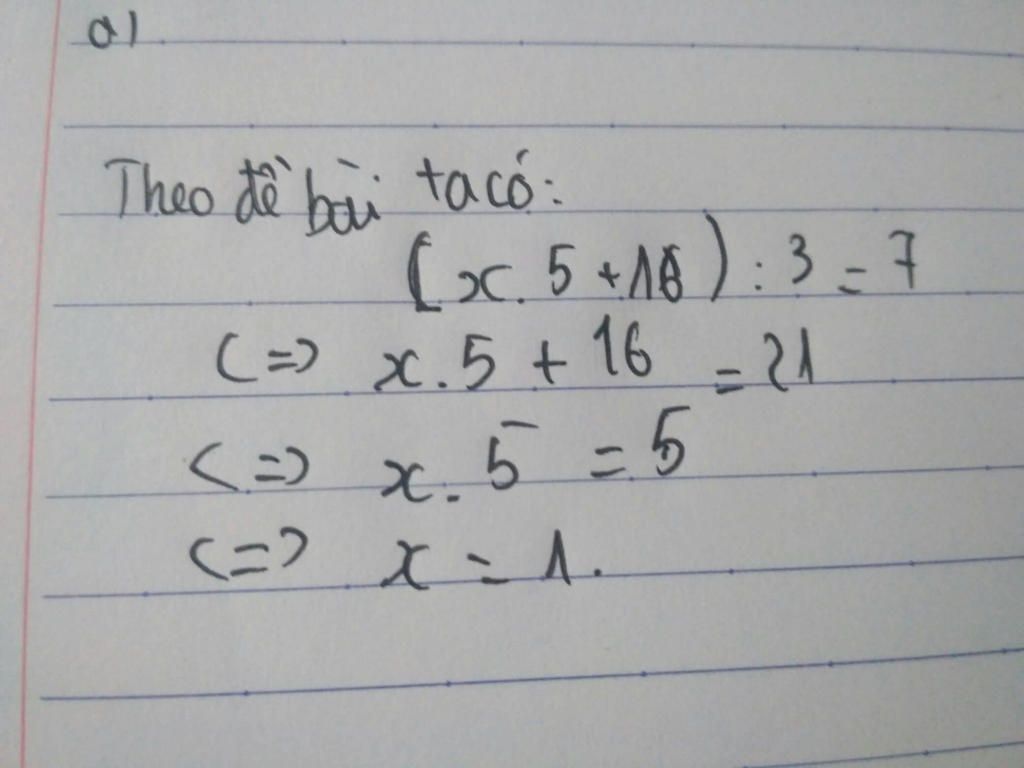 a)
Theo đề bài ta có:
(x. 5 + 16) : 3 = 7
<=> x. 5 + 16 = 21
<=> x. 5 = 5
<=> x = 1.